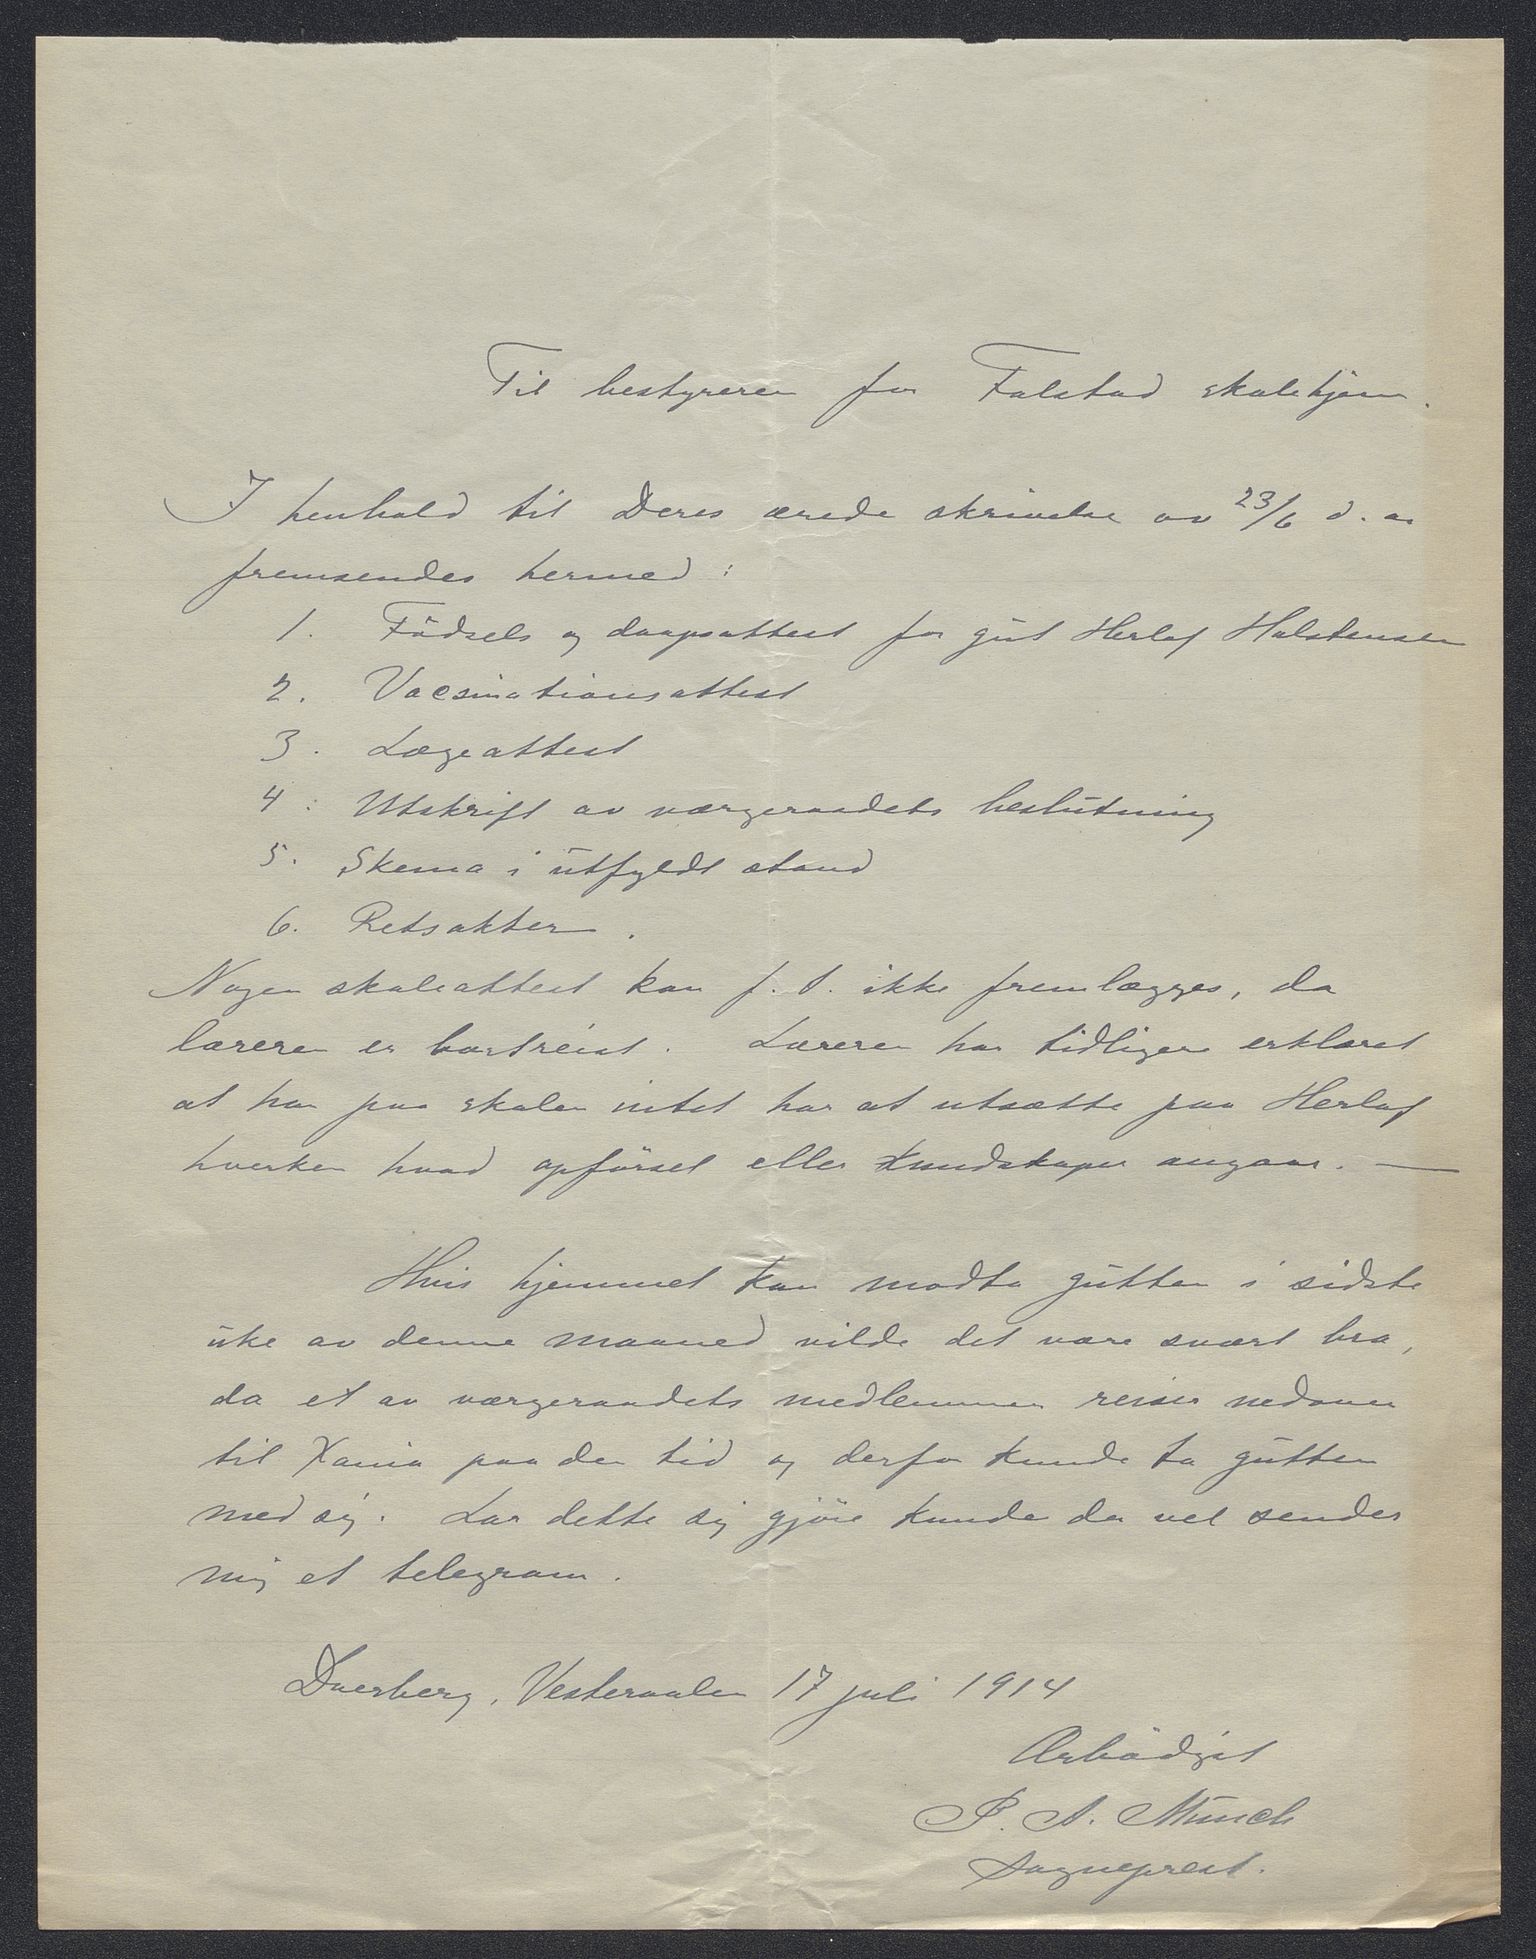 Til bestyreren for Falstad skolehjem.
I henhold til Deres ærede skrivelse av 23/6 d. a
fremsendes hermed:
1. Födsels og daapsattest for gut Herlof Halstensen
2. Vacsinationsattest
3. Lægeattest
4. Utskrift av værgeraadets beslutning
5. Skema i utfyldt stand
6. Retsakter.
Nogen skoleattest kan f. t. ikke fremlægges, da
læreren er bortreist. Læreren har tidligere erklæret
at han paa skolen intet har at utsætte paa Herlof
hverken hvad opförsel eller kundskaper angaar. —
Hvis hjemmet kan modta gutten i sidste
uke av denne maaned vilde det være svært bra,
da et av værgeraadets medlemmer reiser nedover
til Xania paa den tid og derfor kunde ta gutten
med sig. Lar dette sig gjöre kunde der vel sendes
mig et telegram.
Dverberg, Vesteraalen 17 juli 1914
Ærbödigst
P. A. Münch
Sogneprest.